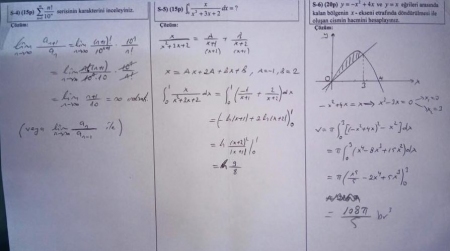 S-4) (15p) ∑ n!/10ⁿ serisinin karakterini inceleyiniz.
Çözüm:
lim a_{n+1}/a_n = lim (n+1)!/10^{n+1} · 10ⁿ/n!
= lim n!(n+1)/10ⁿ·10 · 10ⁿ/n!
= lim (n+1)/10 = ∞
(veya lim a_n/a_{n+1})
S-5) (15p) ∫ x/(x²+3x+2) dx = ?
Çözüm:
x/(x²+3x+2) = A/(x+1) + B/(x+2)
x = Ax+2A+Bx+B, A=-1, B=2
∫₀¹ x/(x²+3x+2) dx = ∫₀¹ (-1/(x+1) + 2/(x+2)) dx
= (-ln|x+1| + 2ln|x+2|)₀¹
= ln (x+2)²/|x+1| |₀¹
= ln 9/8
S-6) (20p) y = -x² + 4x ve y = x eğrileri arasında
kalan bölgenin x - ekseni etrafında döndürülmesi ile
oluşan cismin hacmini hesaplayınız.
Çözüm:
3
-x²+4x = x ⇒ x²-3x=0 x₁=0 x₂=3
V = π∫₀³ [(-x²+4x)² - x²] dx
= π∫₀³ (x⁴-8x³+15x²) dx
= π(x⁵/5 - 2x⁴ + 5x³)₀³
= 108π/5 br³